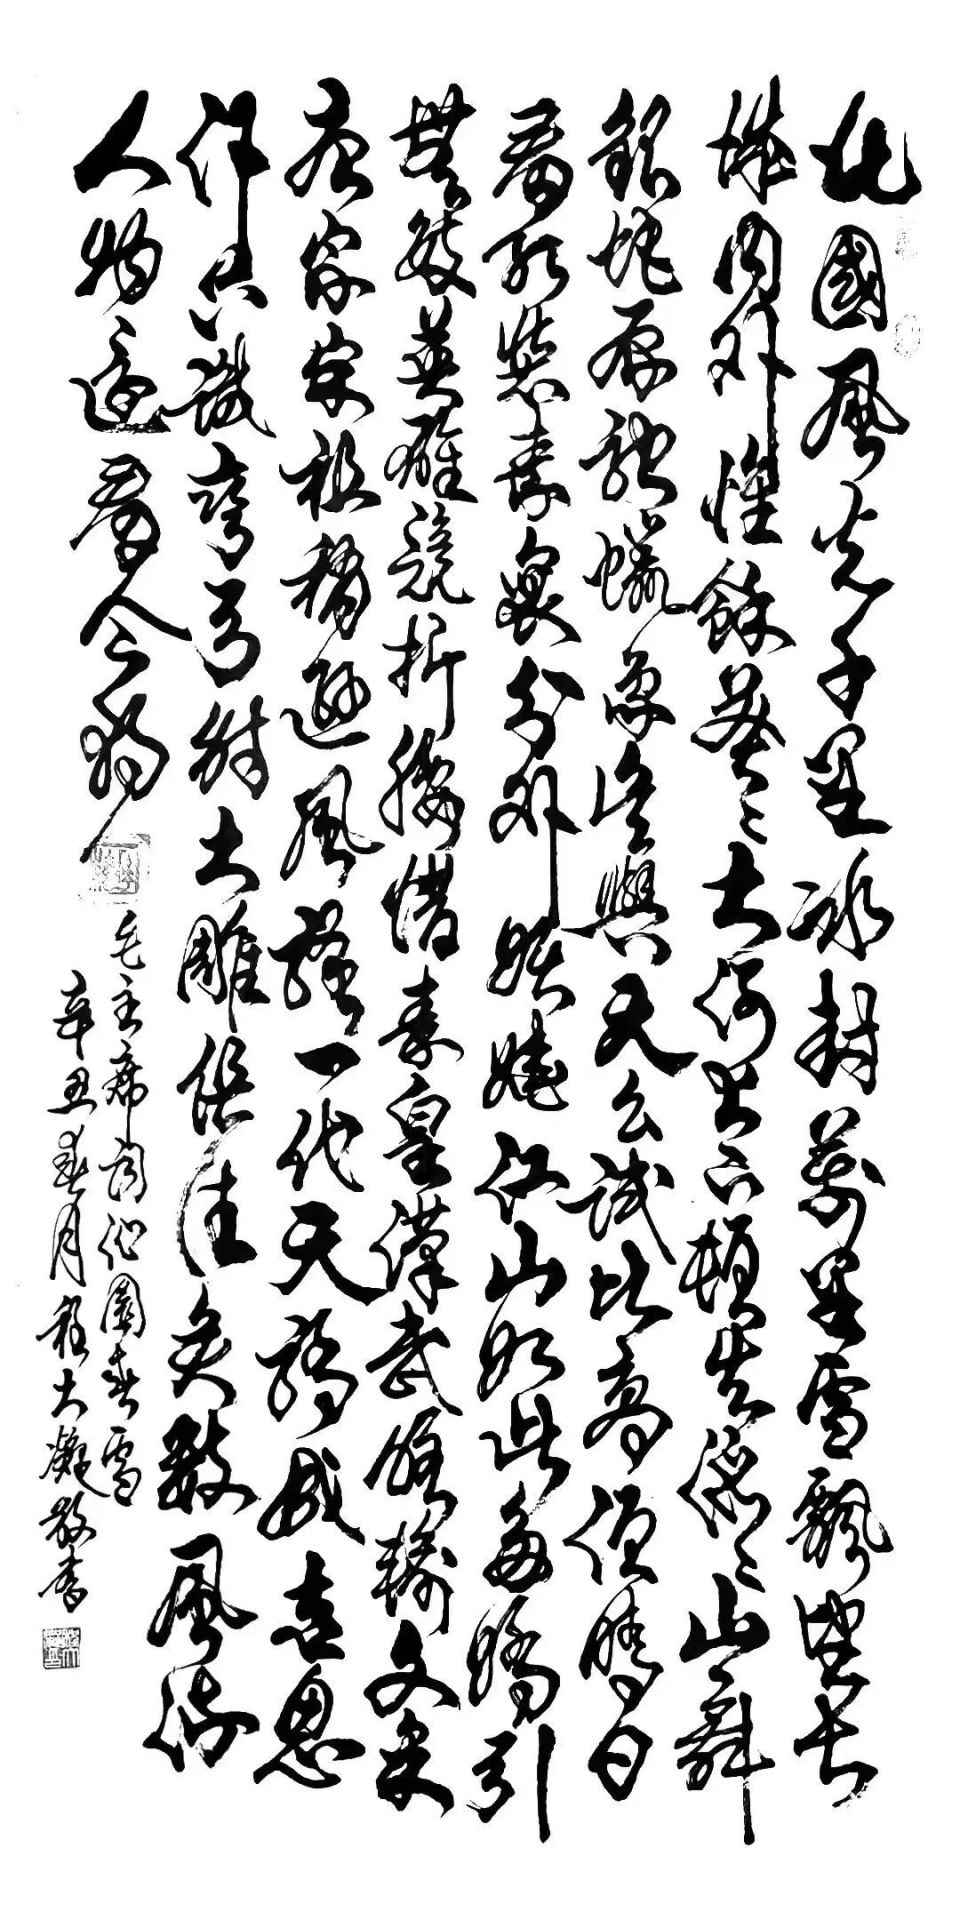 北國風光千里冰封萬里雪飄望長
城內外惟餘莽〻大河上下頓失滔〻山舞
銀蛇原馳蠟象欲與天公試比高須晴日
看紅裝素裹分外妖嬈江山如此多嬌引
無數英雄競折腰惜秦皇漢武略輸文采
唐宗宋祖稍遜風騷一代天驕成吉思
汗只識彎弓射大雕俱往矣數風流
人物還看今朝
毛主席詞沁園春雪
辛丑春月程大敬書